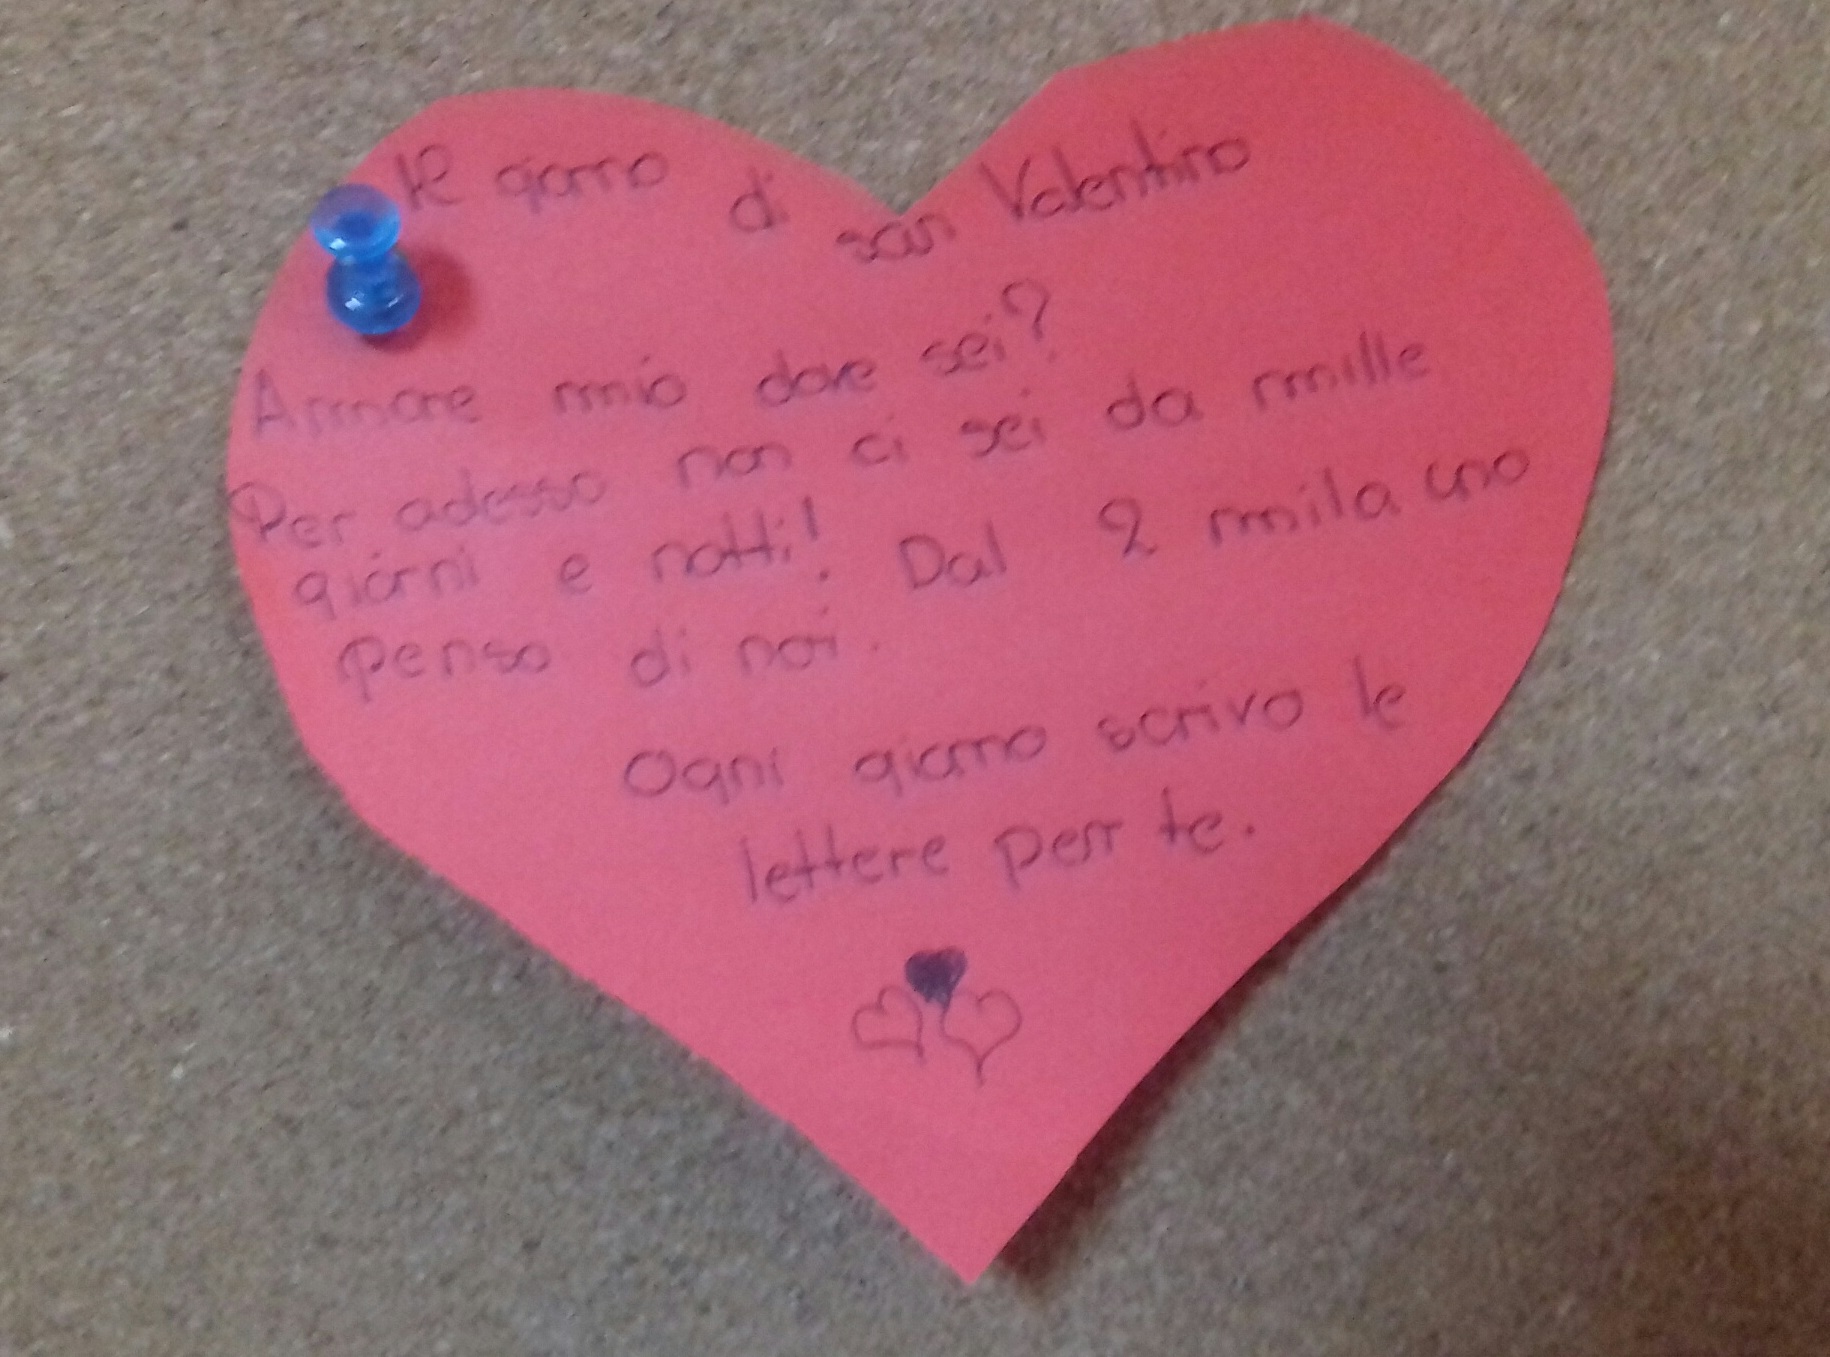 Il giorno di san Valentino
Amore mio dove sei?
Per adesso non ci sei da mille
giorni e notti! Dal 2 mila uno
penso di noi.
Ogni giorno scrivo le
lettere per te.